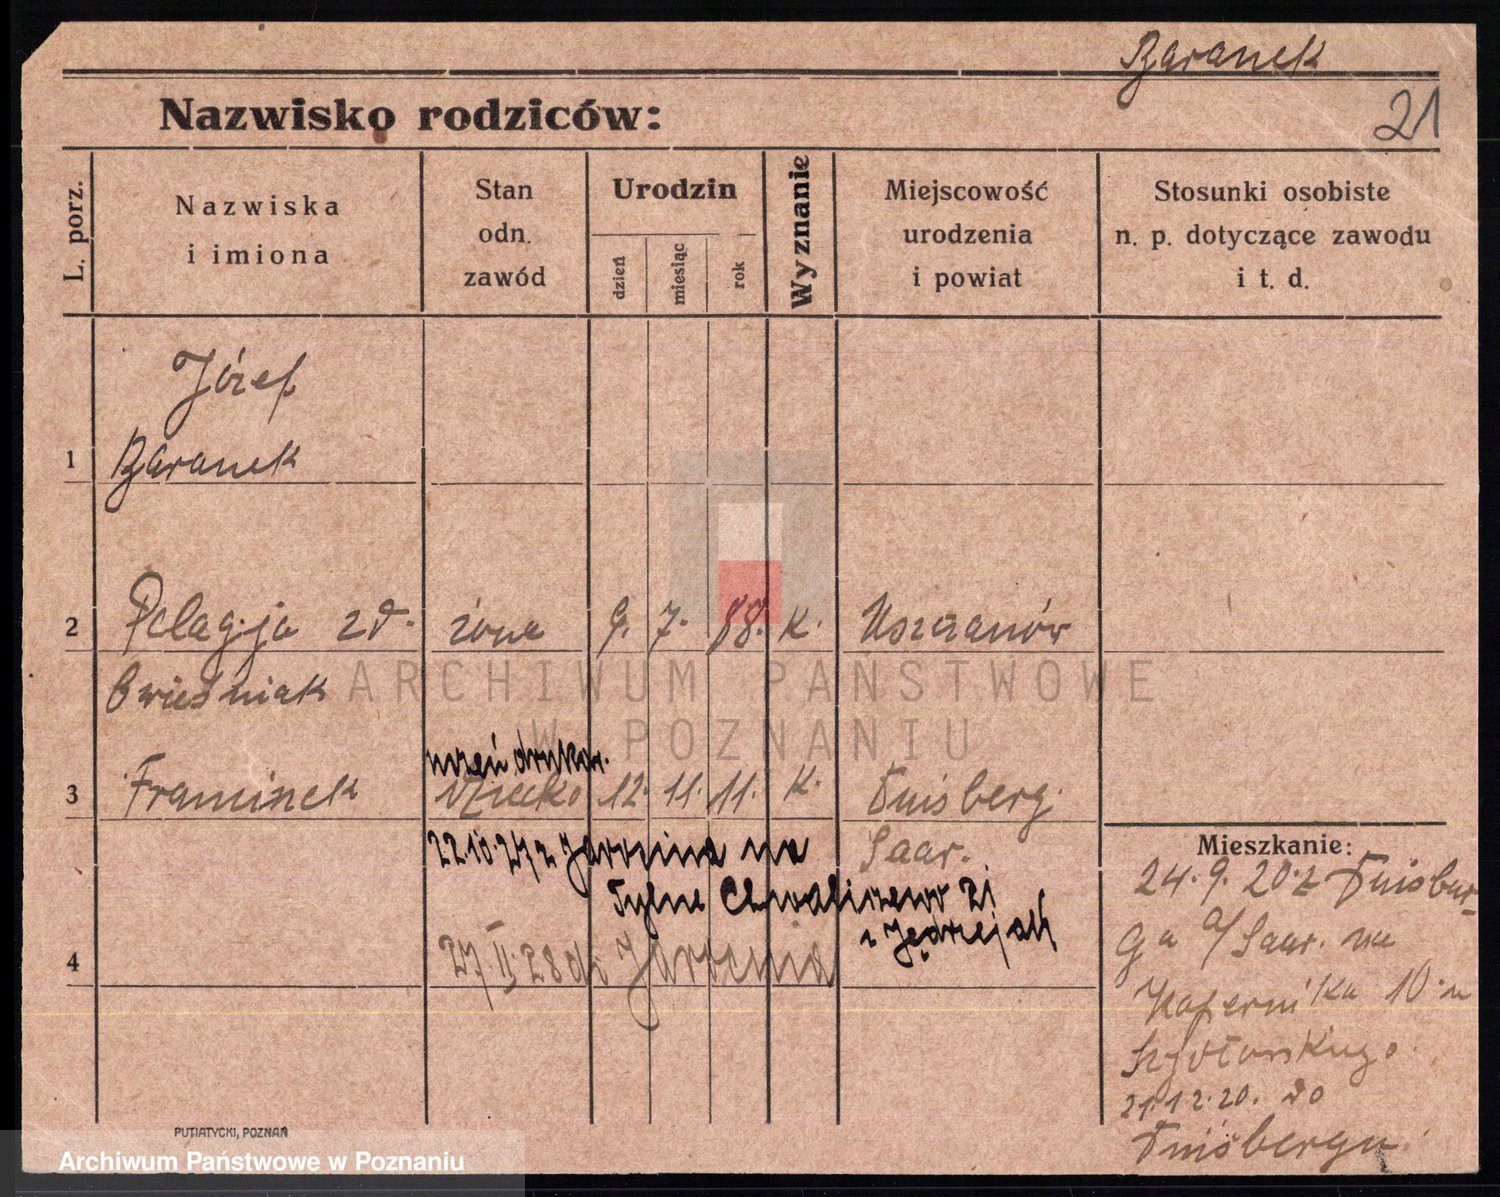 Baranek
21
Nazwisko rodziców:
L. porz.
Nazwiska
i imiona
Stan
odn.
zawód
Urodzin
dzień
miesiąc
rok
Wyznanie
Miejscowość
urodzenia
i powiat
Stosunki osobiste
n. p. dotyczące zawodu
i t. d.
Józef
1 Baranek
2 Pelagja zd. żona 9. 7. 88. K. Uszczanów
ARCHIWUM PAŃSTWOWE
W POZNANIU
uczeń drukar.
3 Franciszek dziecko 12. 11. 11. K. Duisberg
Saar.
22.10.27 z Jarocina na
Tylne Chwaliszewo 21
Jędrzejak
4 27.II.28 do Jarocina
Mieszkanie:
24.9.20 z Duisbur-
ga a/Saar. na
Kopernika 10 u
21.12.20. do
Duisberga
PUTIATYCKI, POZNAŃ
Archiwum Państwowe w Poznaniu